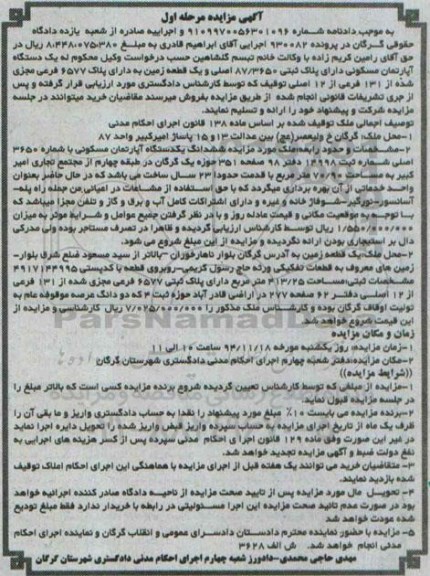 آگهی مزایده مرحله اول
به موجب دادنامه شماره ۹۱۰۹۹۷۰۰۵۶۳۰۱۰۹۶ و اجراییه صادره از شعبه یازده دادگاه
حقوقی گرگان در پرونده ۹۳۰۰۸۲ اجرایی آقای ابراهیم قادری به مبلغ ۸٬۴۴۸٬۰۷۵٬۳۸۰ ریال در
حق آقای رامین کریم زاده با وکالت خانم تبسم گلشاهین حسب درخواست وکیل محکوم له یک دستگاه
آپارتمان مسکونی دارای پلاک ثبتی ۸۷/۳۶۵۰ اصلی و یک قطعه زمین به دارای پلاک ۶۵۷۷ فرعی مجزی
شده از ۱۳۱ فرعی از ۱۲ اصلی توقیف که توسط کارشناس دادگستری مورد ارزیابی قرار گرفته و پس
از جری تشریفات قانونی انجام شده از طریق مزایده بفروش میرسد متقاضیان خرید میتوانند در جلسه
مزایده شرکت و پیشنهاد خود را ارائه و تسلیم نمایند.
توصیف اجمالی ملک توقیف شده بر اساس ماده ۱۳۸ قانون اجرای احکام مدنی
۱-محل ملک: گرگان خ ولیعصر(عج) بین عدالت ۱۳ و ۱۵ پاساژ امیرکبیر واحد ۸۷
۲-مشخصات و حدود رابعه:ملک مورد مزایده ششدانگ یکدستگاه آپارتمان مسکونی با شماره ۳۶۵۰
اصلی شماره ثبت ۱۴۹۹۸ دفتر ۹۸ صفحه ۳۵۱ حوزه یک گرگان در طبقه چهارم از مجتمع تجاری امیر
کبیر به مساحت ۷۸/۷۰ متر مربع با قدمت حدود ۲۳ سال ساخت می باشد که در حال حاضر بعنوان
واحد خدماتی از آن بهره برداری میگردد که با حق استفاده از مشاعات در اعیانی،من جمله راه پله-
آسانسور-نورگیر-شوفاژ خانه و غیره و دارای اشتراکات کامل آب و برق و گاز و تلفن مجزا میباشد که
با توجه به موقعیت مکانی و قیمت عادله روز و با در نظر گرفتن جمیع عوامل و شرایط موثر به میزان
۱/۵۵۰/۰۰۰/۰۰۰ ریال توسط کارشناس ارزیابی گردیده و ظاهرا در تصرف مستاجر بوده ولی مدرکی
دال بر استیجاری بودن ارائه نگردیده و مزایده از این مبلغ شروع می شود.
۲-محل ملک:یک قطعه زمین به آدرس گرگان بلوار ناهارخوران -بالاتر از سید مسعود ضلع شرق بلوار-
زمین های معروف به قطعات تفکیکی ورثه حاج رسول کریمی-روبروی قطعه با کدپستی ۴۹۱۷۱۴۴۹۹۵
مشخصات ثبتی:مساحت ۴۱۳/۲۵ متر مربع دارای پلاک ثبتی ۶۵۷۷ فرعی مجزی شده از ۱۳۱ فرعی
از ۱۲ اصلی دفتر ۶۲ صفحه ۲۷۷ در اراضی قادر آباد حوزه ثبت ۴ که دو دانگ عرصه موقوفه عام به
تولیت اوقاف گرگان بوده و کارشناس ملک مذکور را ۷/۰۲۵/۰۰۰/۰۰۰ ریال کارشناسی و مزایده از
این قیمت شروع خواهد شد.
زمان و مکان مزایده
۱-زمان مزایده: روز یکشنبه مورخه ۹۴/۱۱/۱۸ ساعت ۱۰ الی ۱۱
۲-مکان مزایده:دفتر شعبه چهارم اجرای احکام مدنی دادگستری شهرستان گرگان
((شرایط مزایده))
۱-مزایده از مبلغی که توسط کارشناس تعیین گردیده شروع برنده مزایده کسی است که بالاتر مبلغ را
در جلسه مزایده قبول نماید
۲-برنده مزایده می بایست ۱۰٪ مبلغ مورد پیشنهاد را نقدا به حساب دادگستری واریز و ما بقی آن را
ظرف یک ماه از تاریخ اجرای مزایده به حساب سپرده واریز قبض واریز شده را تحویل دایره اجرا نماید
در غیر این صورت وفق ماده ۱۲۹ قانون اجرای احکام مدنی سپرده پس از کسر هزینه های اجرایی به
نفع دولت ضبط و آگهی مزایده تجدید خواهد شد.
۳- متقاضیان خرید می توانند یک هفته قبل از اجرای مزایده با هماهنگی این اجرای احکام املاک توقیف
شده بازدید نمایند.
۴- تحویل مال مورد مزایده پس از تایید صحت مزایده از ناحیه دادگاه صادر کننده اجرائیه خواهد
بود در صورت عدم تائید صحت مزایده این اجرا مسئولیتی در رابطه با خریدار ندارد فقط مبلغ تودیع
شده عودت خواهد شد
۵- مزایده با حضور نماینده محترم دادستان دادسرای عمومی و انقلاب گرگان و نماینده اجرای احکام
مدنی انجام خواهد شد. ش الف ۳۶۲۸
مهدی حاجی محمدی-دادورز شعبه چهارم اجرای احکام مدنی دادگستری شهرستان گرگان
ParsNamadData